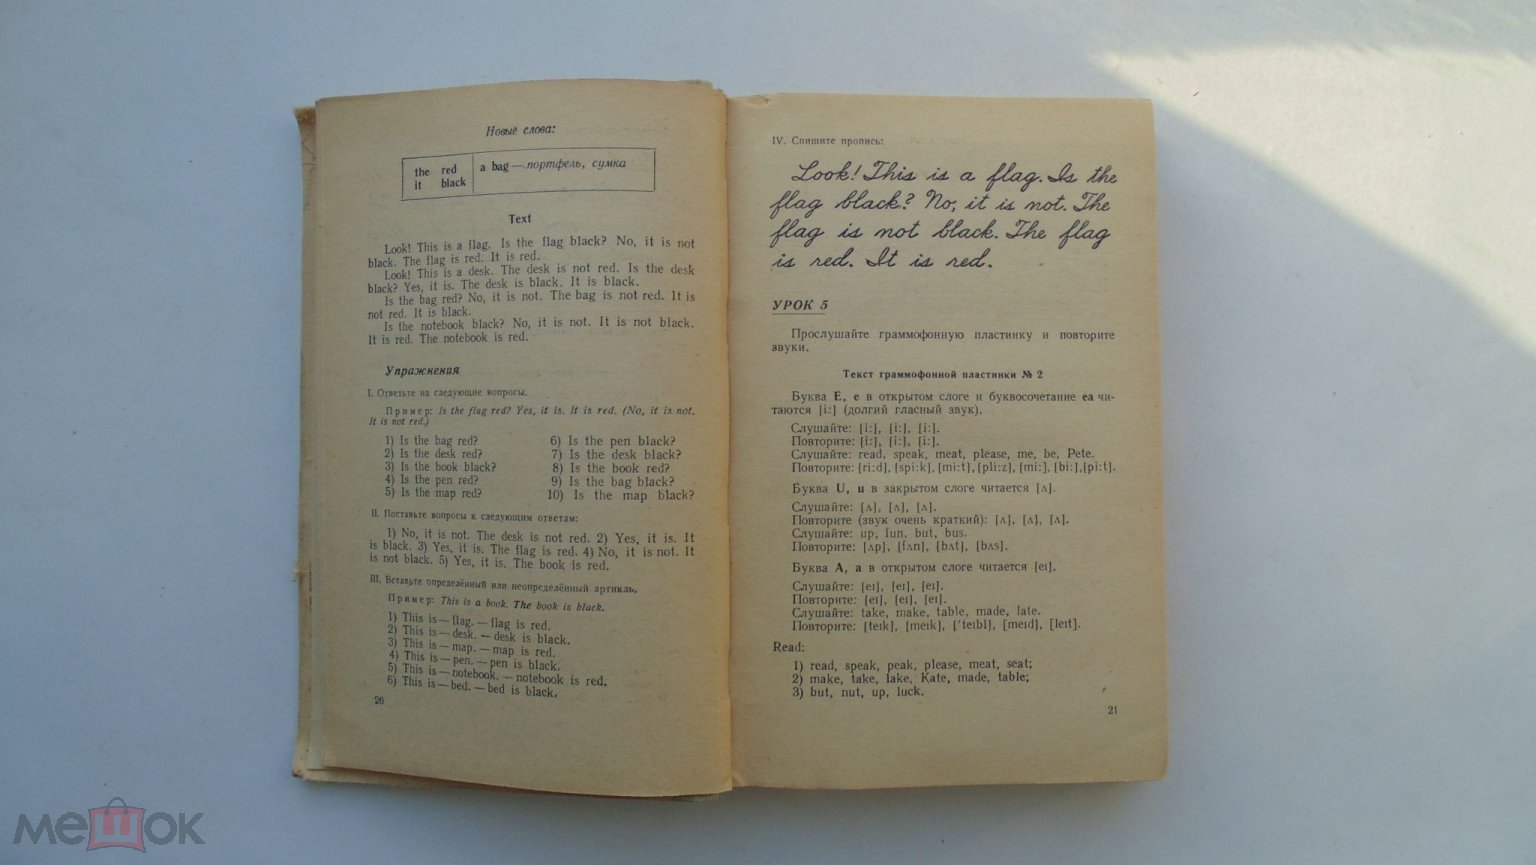 Новые слова:
the red
it black
a bag — портфель, сумка
Text
Look! This is a flag. Is the flag black? No, it is not
black. The flag is red. It is red.
Look! This is a desk. The desk is not red. Is the desk
black? Yes, it is. The desk is black. It is black.
Is the bag red? No, it is not. The bag is not red. It is
not red. It is black.
Is the notebook black? No, it is not. It is not black.
It is red. The notebook is red.
Упражнения
I. Ответьте на следующие вопросы.
Пример: Is the flag red? Yes, it is. It is red. (No, it is not.
It is not red.)
1) Is the bag red?
2) Is the desk red?
3) Is the book black?
4) Is the pen red?
5) Is the map red?
6) Is the pen black?
7) Is the desk black?
8) Is the book red?
9) Is the bag black?
10) Is the map black?
II. Поставьте вопросы к следующим ответам:
1) No, it is not. The desk is not red. 2) Yes, it is. It
is black. 3) Yes, it is. The flag is red. 4) No, it is not. It
is not black. 5) Yes, it is. The book is red.
III. Вставьте определённый или неопределённый артикль.
Пример: This is a book. The book is black.
1) This is — flag. — flag is red.
2) This is — desk. — desk is black.
3) This is — map. — map is red.
4) This is — pen. — pen is black.
5) This is — notebook. — notebook is red.
6) This is — bed. — bed is black.
20
IV. Спишите пропись:
Look! This is a flag. Is the
flag black? No, it is not. The
flag is not black. The flag
is red. It is red.
УРОК 5
Прослушайте граммофонную пластинку и повторите
звуки.
Текст граммофонной пластинки № 2
Буква E, e в открытом слоге и буквосочетание ea чи-
таются [i:] (долгий гласный звук).
Слушайте: [i:], [i:], [i:].
Повторите: [i:], [i:], [i:].
Слушайте: read, speak, meat, please, me, be, Pete.
Повторите: [ri:d], [spi:k], [mi:t], [pli:z], [mi:], [bi:], [pi:t].
Буква U, u в закрытом слоге читается [ʌ].
Слушайте: [ʌ], [ʌ], [ʌ].
Повторите (звук очень краткий): [ʌ], [ʌ], [ʌ].
Слушайте: up, fun, but, bus.
Повторите: [ʌp], [fʌn], [bʌt], [bʌs].
Буква A, a в открытом слоге читается [eɪ].
Слушайте: [eɪ], [eɪ], [eɪ].
Повторите: [eɪ], [eɪ], [eɪ].
Слушайте: take, make, table, made, late.
Повторите: [teɪk], [meɪk], ['teɪbl], [meɪd], [leɪt].
Read:
1) read, speak, peak, please, meat, seat;
2) make, take, lake, Kate, made, table;
3) but, nut, up, luck.
21
мешок